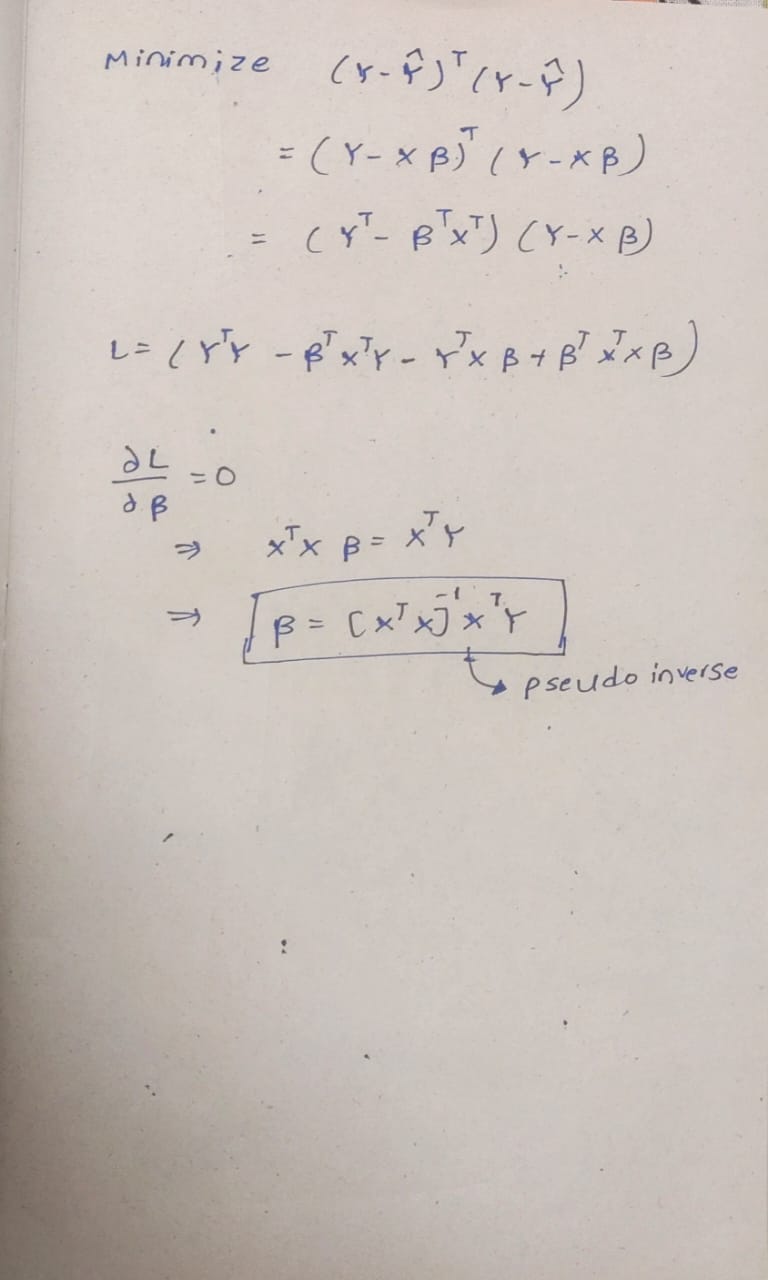 Minimize (Y-Ŷ)ᵀ(Y-Ŷ)
= (Y-Xβ)ᵀ(Y-Xβ)
= (Yᵀ-βᵀXᵀ)(Y-Xβ)
L= (YᵀY -βᵀXᵀY- YᵀXβ+βᵀXᵀXβ)
∂L/∂β =0
⇒ XᵀX β= XᵀY
⇒ β= [XᵀX]⁻¹XᵀY
pseudo inverse